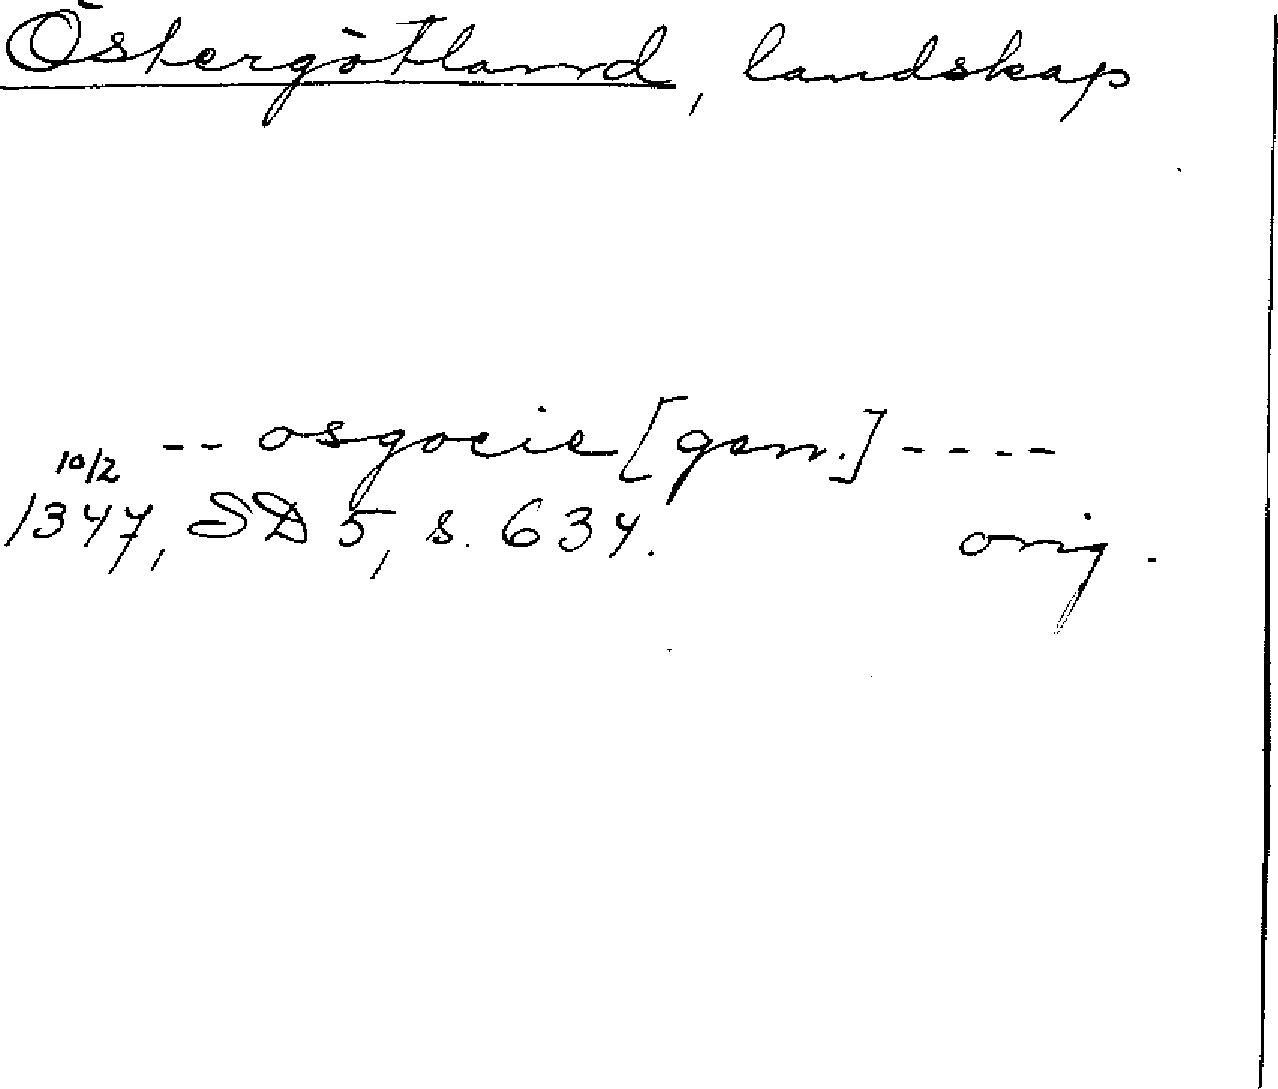 Östergötland, landskap
-- osgocie [gen.] ----
10/2
1347, SD 5, s. 634. orig.